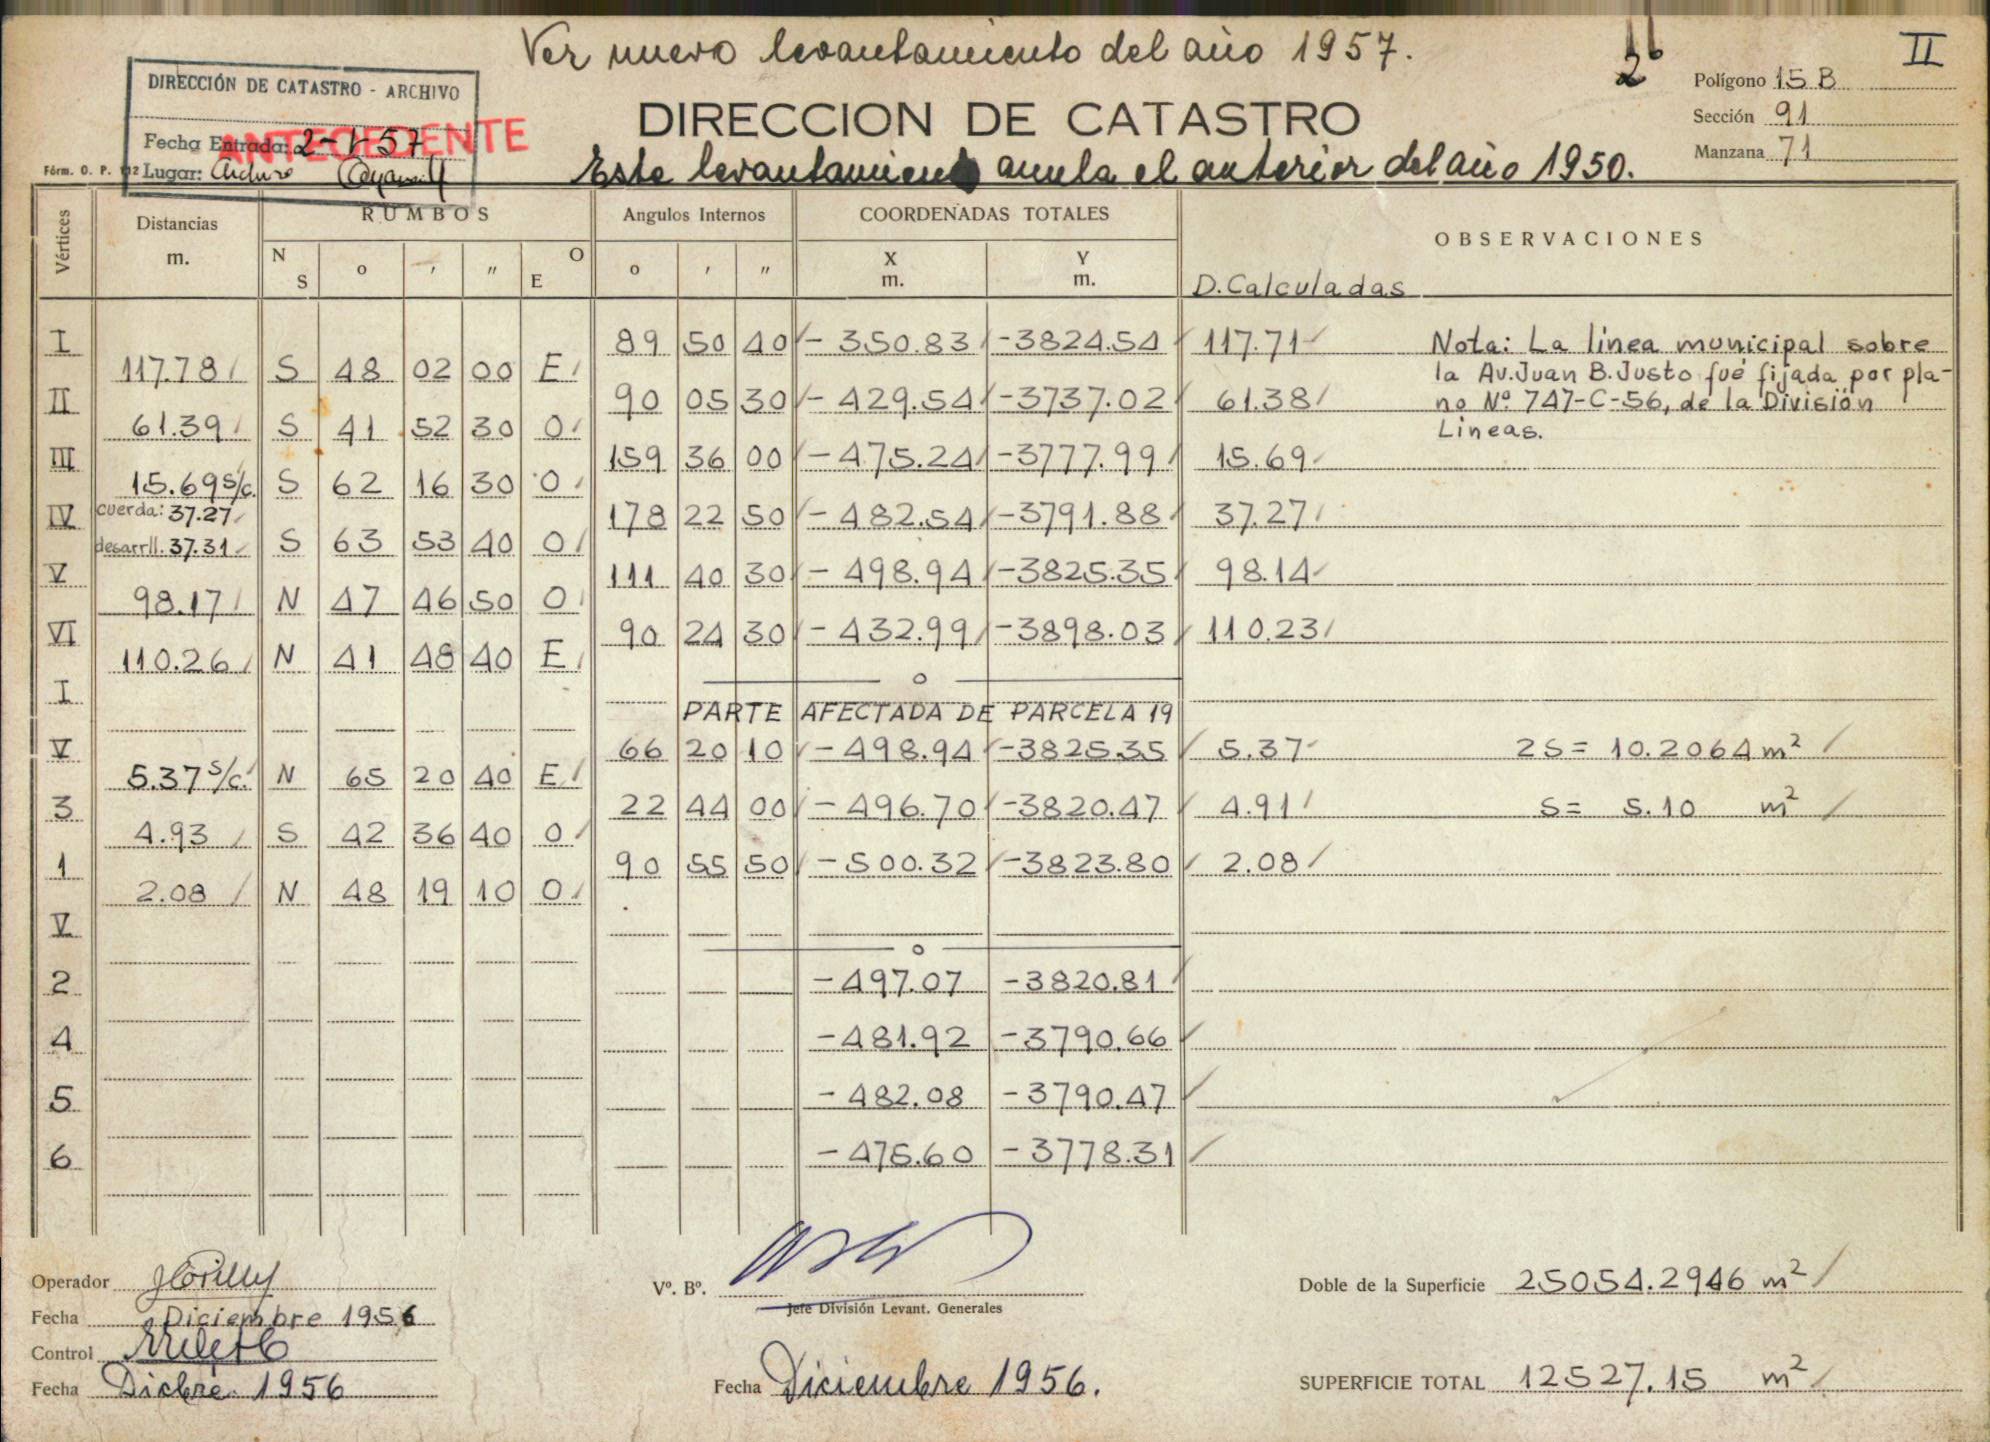 Ver nuevo levantamiento del año 1957.
II
DIRECCIÓN DE CATASTRO - ARCHIVO
Fecha Entrada: 2-1-57
ANTECEDENTE
Lugar:
Fórm. O. P.
DIRECCION DE CATASTRO
Este levantamiento anula el anterior del año 1950.
Polígono 15 B
Sección 91
Manzana 71
Vértices Distancias m. RUMBOS Angulos Internos COORDENADAS TOTALES OBSERVACIONES
N S o ' " O E o ' " X m. Y m. D. Calculadas
I 89 50 40 - 350.83 -3824.54 117.71
117.78 S 48 02 00 E
II 90 05 30 - 429.54 -3737.02 61.38
61.39 S 41 52 30 O
III 159 36 00 - 475.24 -3777.99 15.69
15.69 s/c. S 62 16 30 O
IV 178 22 50 - 482.54 -3791.88 37.27
cuerda: 37.27
desarrll. 37.31 S 63 53 40 O
V 111 40 30 - 498.94 -3825.35 98.14
98.17 N 47 46 50 O
VI 90 24 30 - 432.99 -3898.03 110.23
110.26 N 41 48 40 E
I
Nota: La linea municipal sobre
la Av. Juan B. Justo fué fijada por pla-
no Nº 747-C-56, de la División
Lineas.
PARTE AFECTADA DE PARCELA 19
V 66 20 10 - 498.94 -3825.35 5.37 2S = 10.2064 m²
5.37 s/c. N 65 20 40 E
3 22 44 00 - 496.70 -3820.47 4.91 S = 5.10 m²
4.93 S 42 36 40 O
1 90 55 50 - 500.32 -3823.80 2.08
2.08 N 48 19 10 O
V
2 -497.07 -3820.81
4 -481.92 -3790.66
5 - 482.08 -3790.47
6 -475.60 -3778.31
Operador
Fecha Diciembre 1956
Control
Fecha Dicbre. 1956
Vº. Bº.
Jefe División Levant. Generales
Fecha Diciembre 1956.
Doble de la Superficie 25054.2946 m²
SUPERFICIE TOTAL 12527.15 m²